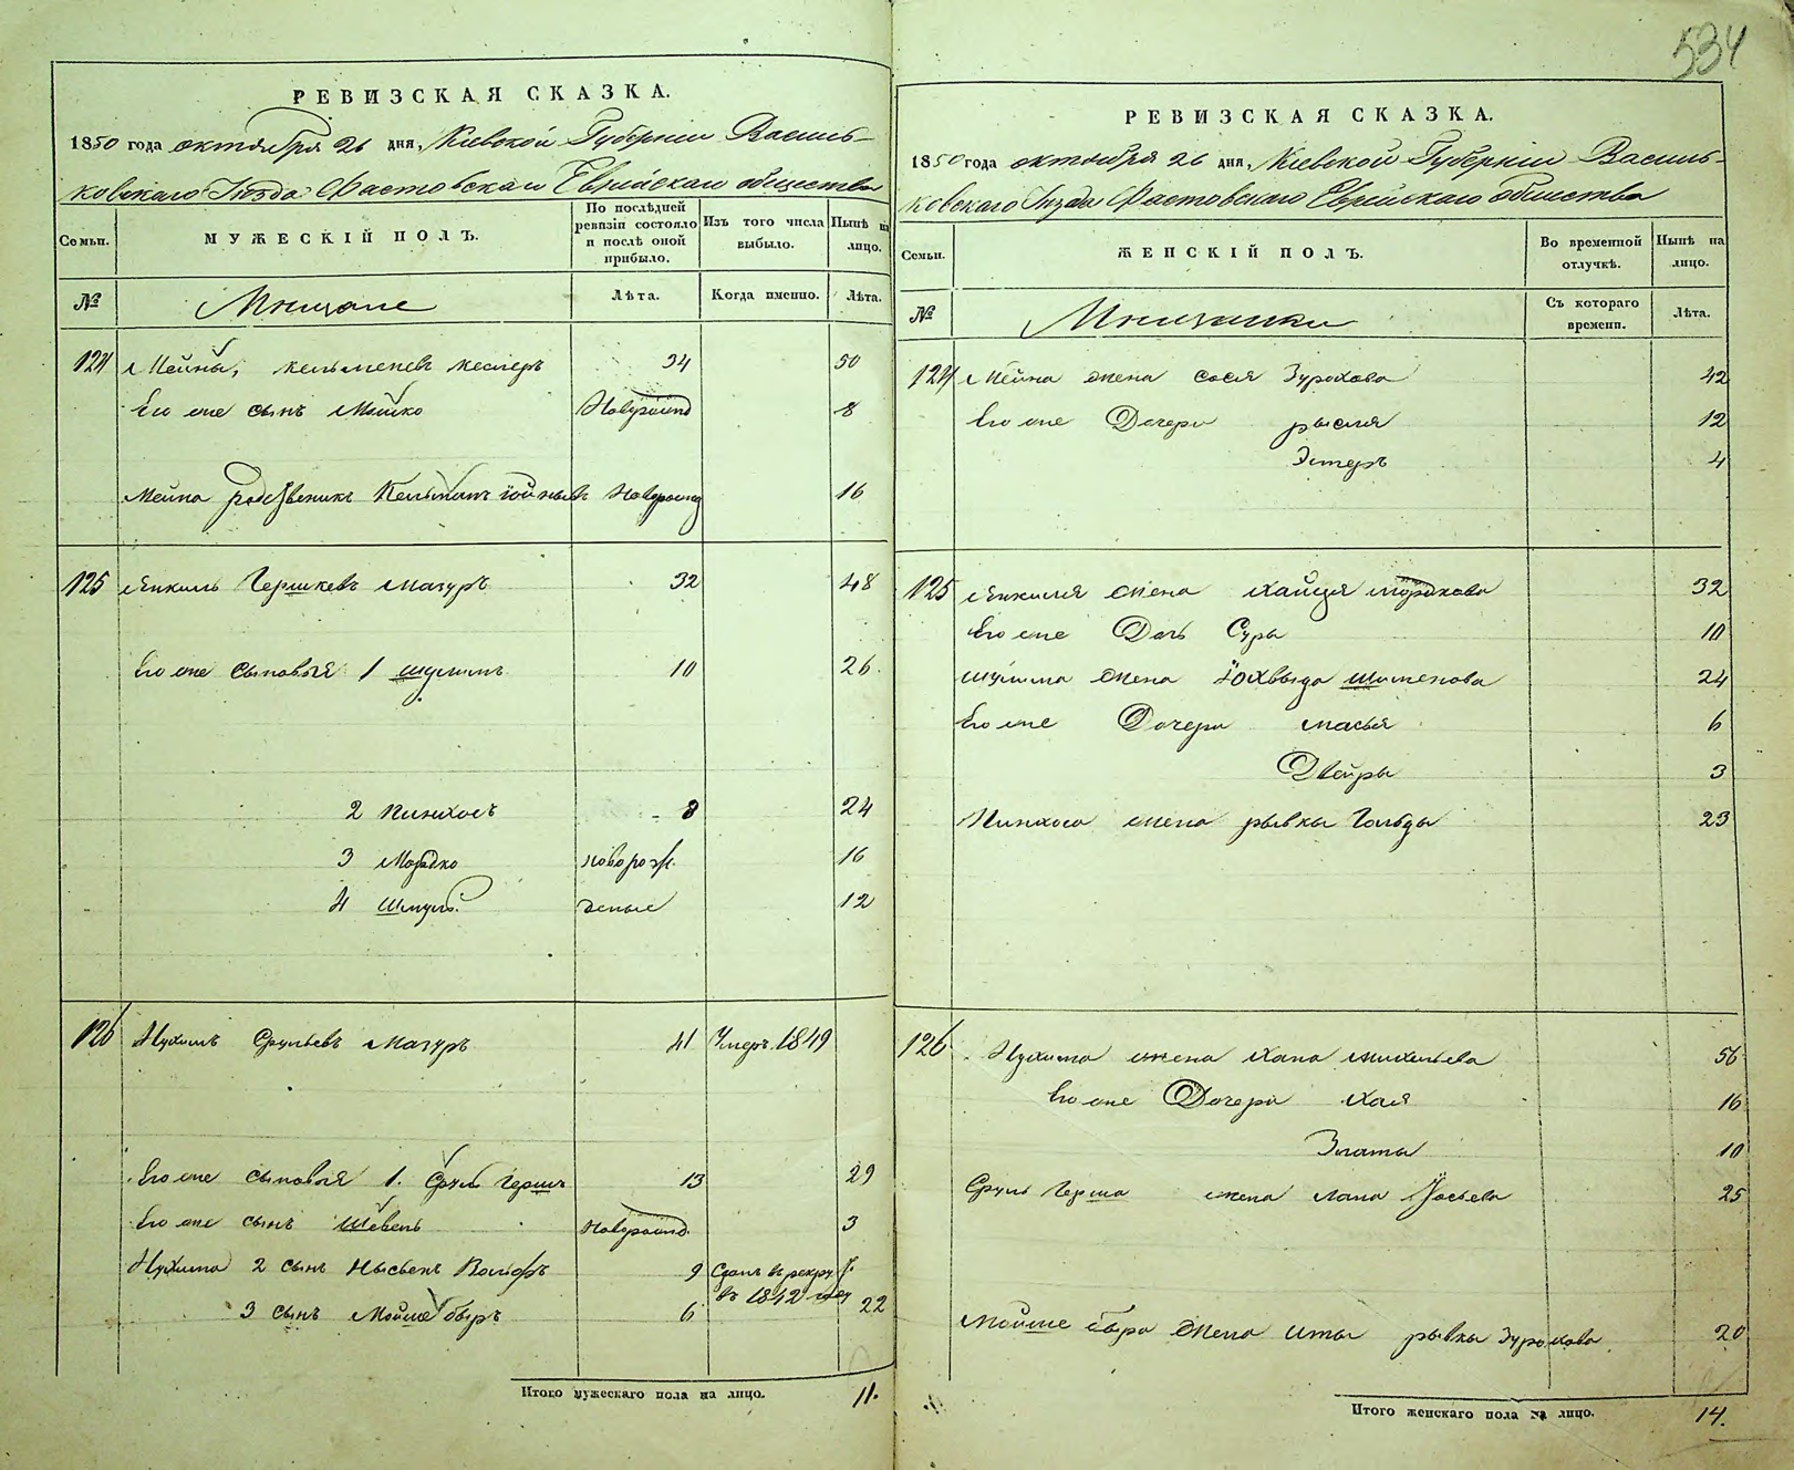 534
РЕВИЗСКАЯ СКАЗКА.
1850 года октября 26 дня, Кіевской Губерніи Василь-
ковскаго Уѣзда Фастовскаго Еврейскаго общества
Семьи.
МУЖЕСКІЙ ПОЛЪ.
По послѣдней ревизіи состояло и послѣ оной прибыло.
Изъ того числа выбыло.
Нынѣ на лицо.
№
Мещане
Лѣта.
Когда именно.
Лѣта.
124 Мейна, Кельменевъ 34 50
Его же сынъ Мошко Новорожд 8
Мейна родственикъ Кельманъ Новорожд 16
125 Янкель Гершковъ Мазуръ 32 48
Его же сыновья 1 Шулимъ 10 26.
2 Пинхосъ 8 24
3 Мордко новорож. 16
4 Шмуль. деные 12
126 Нухимъ Срульевъ Мазуръ 41 Умеръ 1849
Его же сыновья 1. Сруль Гершъ 13 29
Его же сынъ Новорожд. 3
Нухима 2 сынъ Вольфъ 9 Сданъ въ рекру.
въ 1842 году
3 сынъ Мойше Беръ 6 22
Итого мужескаго пола на лицо. 11.
РЕВИЗСКАЯ СКАЗКА.
1850 года октября 26 дня, Кіевской Губерніи Василь-
ковскаго Уѣзда Фастовскаго Еврейскаго общества
Семьи.
ЖЕНСКІЙ ПОЛЪ.
Во временной отлучкѣ.
Нынѣ на лицо.
№
Мещанки
Съ котораго времени.
Лѣта.
124 Мейна жена Сося Зурохова 42
Его же Дочери Рысля 12
Эстеръ 4
125 Янкиля жена Хайця Мордкова 32
Его же Дочь Сура 10
Шулима жена Іохвыда Шименова 24
Его же Дочери Масья 6
Двейра 3
Пинхоса жена Рывка Гольда 23
126 Нухима жена Хана Михельева 56
Его же Дочери Хая 16
Злата 10
Сруль Герша жена Хана Йосьева 25
Мойше Бера жена Ита Рывка Зурохова. 20
Итого женскаго пола на лицо. 14.